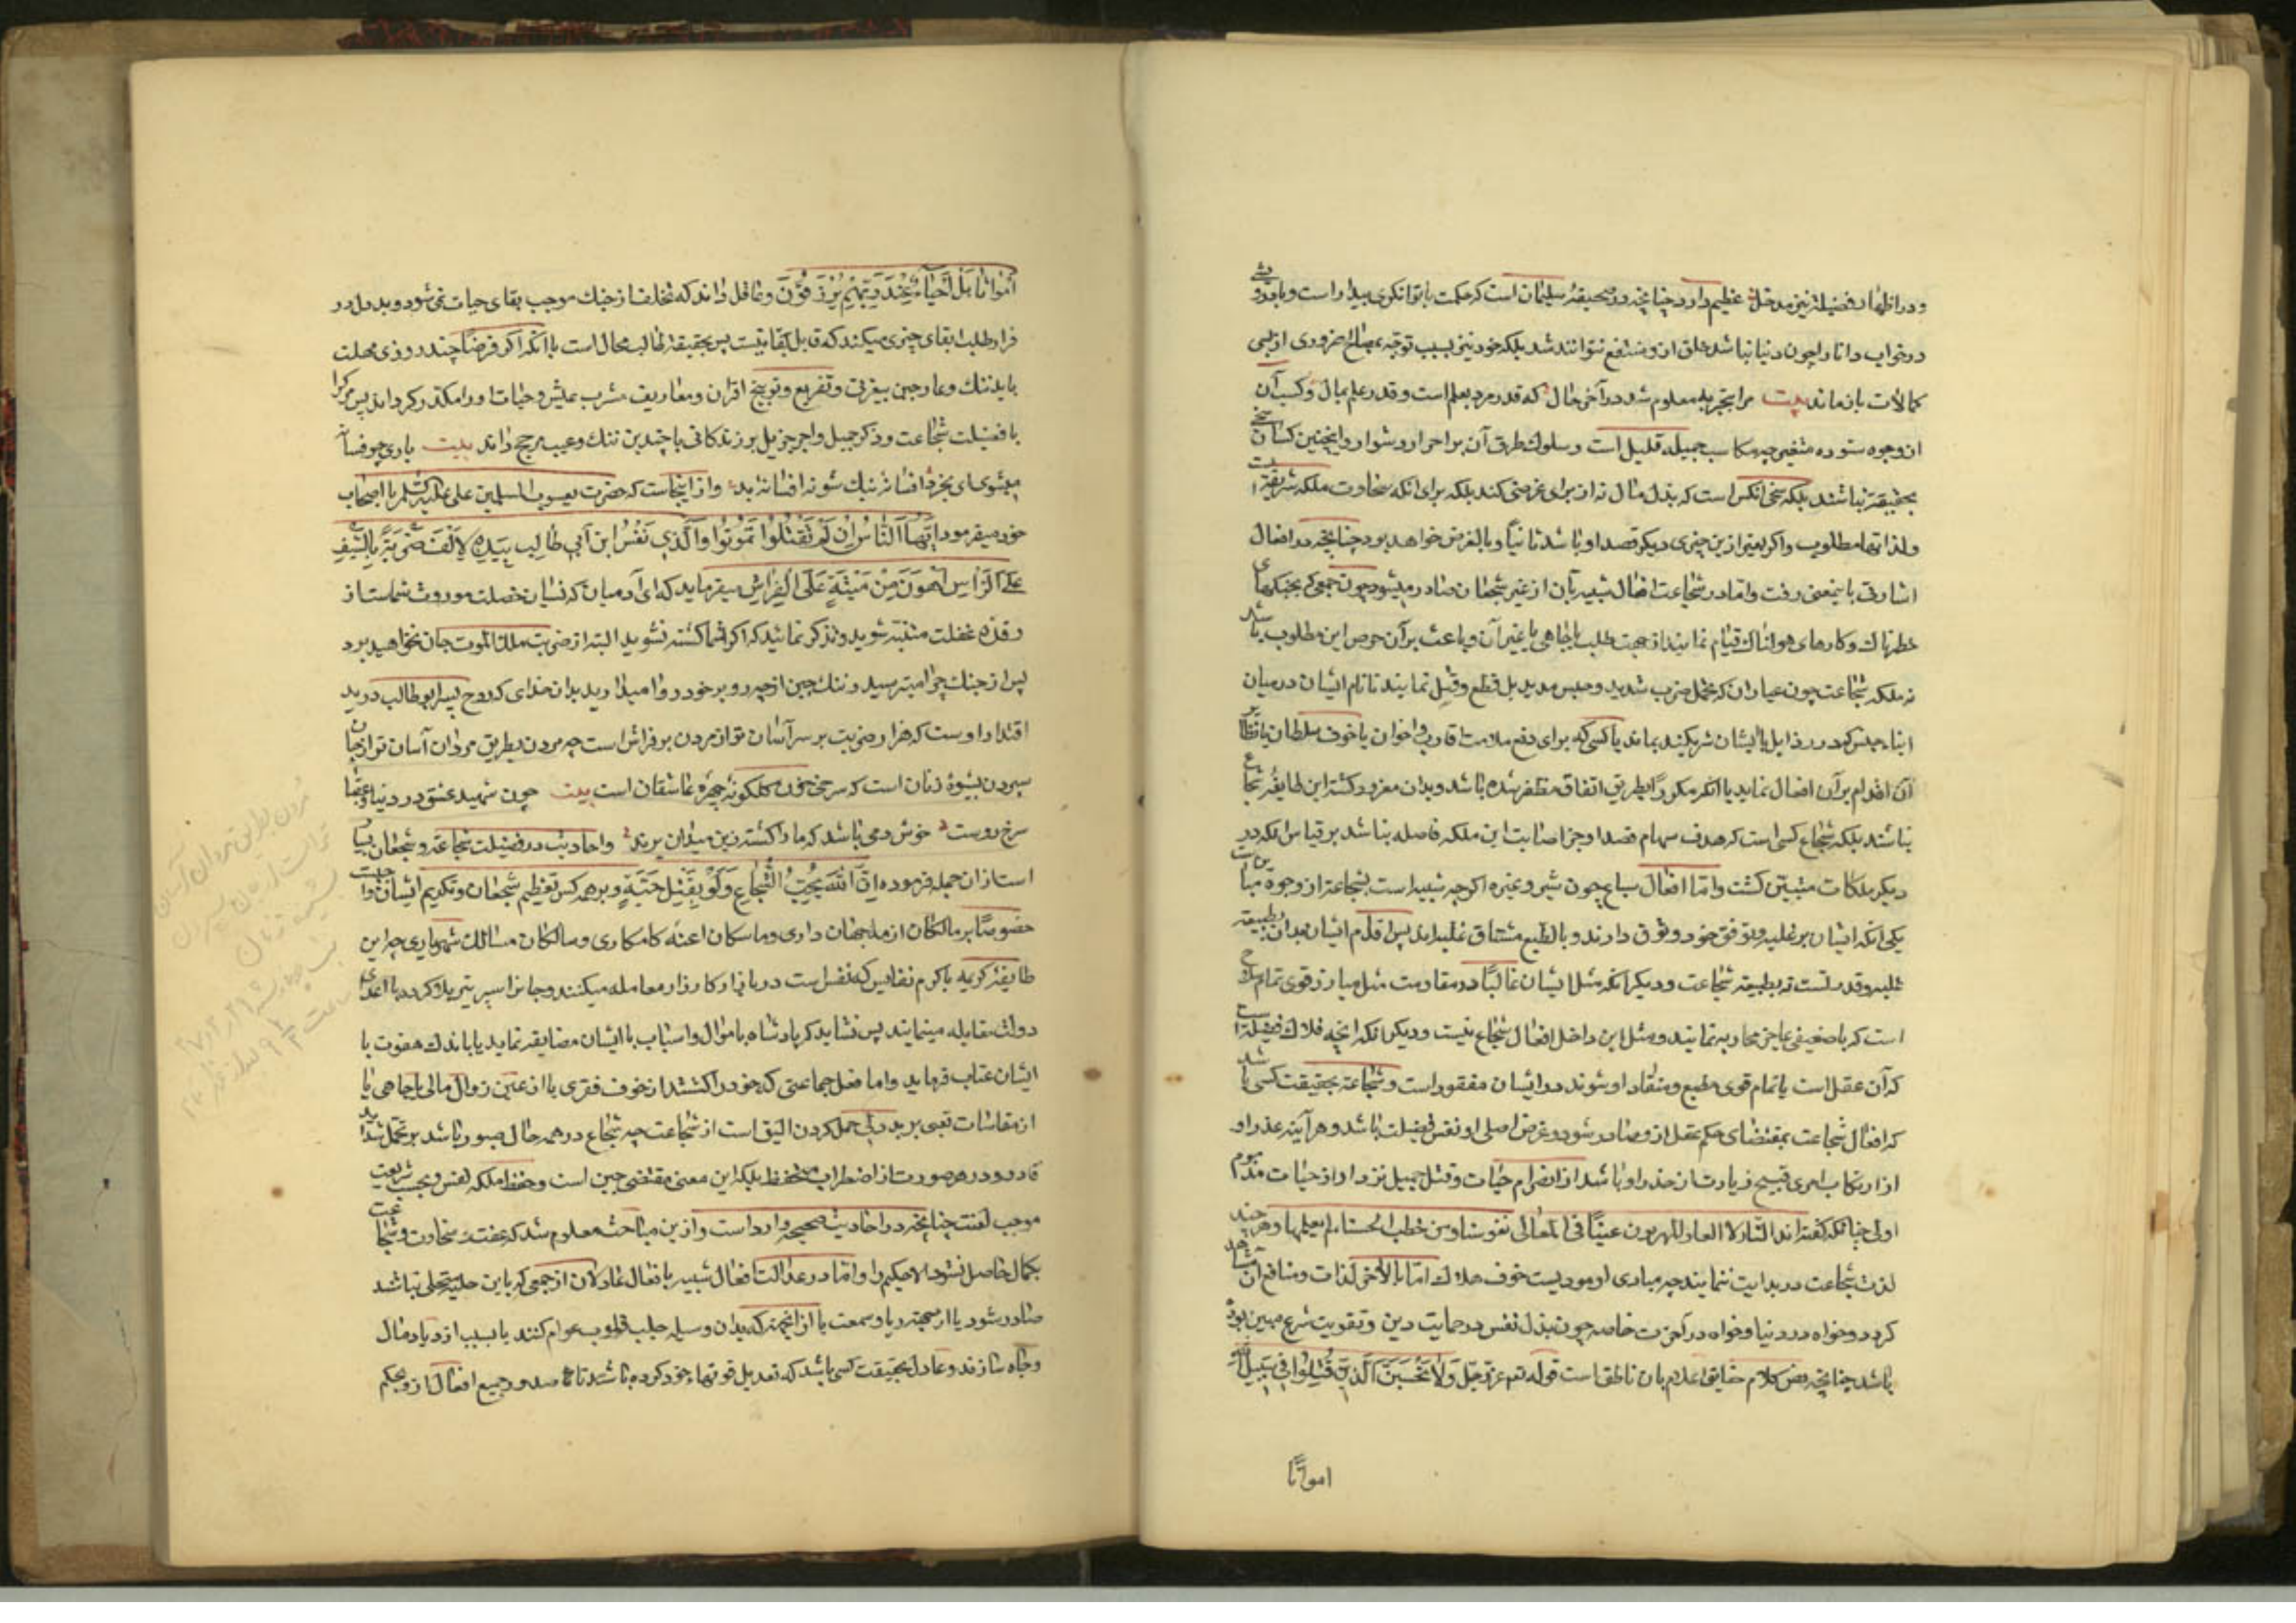 و در اظهار فضیلت نیز مدخل عظیم دارد چنانچه در صحیفهٔ سلیمان است که حکمت با توانکری بیدار است و با درویشی
در خواب و دانا را چون دنیا نباشد خلق ازو منتفع نتوانند شد بلکه خود نیز بسبب توجه بمصالح ضروری از بسی
کمالات باز ماند بیت مرا بتجربه معلوم شد در آخر حال که قدر مرد بعلم است و قدر علم بمال و کسب آن
از وجوه ستوده متعسر چه مکاسب جمیله قلیل است و سلوک طرق آن بر احرار دشوار و اینچنین کسان سخی
بحقیقت نباشند بلکه سخی انکس است که بذل مال نه از برای غرضی کند بلکه برای انکه سخاوت ملکه شریفه است
و لذاتها مطلوب و اکر بغیر ازین چیزی دیکر قصد او باشد ثانیاً و بالعرض خواهد بود چنانچه در افعال
اشارتی باینمعنی رفت و اما در شجاعت افعال شبیه بآن از غیر شجعان صادر میشود چون جمعی که بجنکهای
خطرناک و کارهای هولناک قیام نمایند از جهت طلب یا جاهی یا غیر آن و باعث بر آن حرص این مطلوب باشد
نه ملکه شجاعت چون عیاران که تحمل ضرب شدید و حبس مدید بل قطع و قتل نمایند تا نام ایشان در میان
ابناء جنس که در رذایل با ایشان شریکند بماند یا کسی که برای دفع ملامت اقارب و اخوان یا خوف سلطان یا نظایر
آن اقدام بر آن افعال نماید یا آنکه مکرراً بطریق اتفاق مظفر شده باشد و بدان مغرور کشته این طایفه شجاع
نباشند بلکه شجاع کسی است که هدف سهام قصد او جز اصابت این ملکه فاضله نباشد بر قیاس انکه در
دیکر ملکات متبین کشت و اما افعال سباع چون شیر و غیره اکرچه شبیه است بشجاعت از وجوه مباین است
یکی انکه ایشان بر غلبه و تفوق خود وثوق دارند و بالطبع مشتاق غلبه‌اند پس اقدام ایشان بدان بطبیعت
غلبه و قدرتست نه بطبیعت شجاعت و دیکر انکه مثل ایشان غالباً در مقاومت مثل مبارز قوی تمام سلاح
است که با ضعیفی عاجز محاربه نمایند و مثل این داخل افعال شجاع نیست و دیکر انکه آنچه ملاک فضیلت است
که آن عقل است یا تمام قوی مطیع و منقاد او شوند در ایشان مفقود است و شجاعت بحقیقت کسی باشد
که افعال شجاعت بمقتضای حکم عقل ازو صادر شود و غرض اصلی او نفس فضیلت باشد و هر آینه حذر او
از ارتکاب امری قبیح زیادت از حذر او باشد از انصرام حیات و قتل جمیل نزد او از حیات مذموم
اولی چنانکه کفته اند النار لا العار للهربون علینا فی المعالی نفوسنا و من خطب الحسناء لم یغلها و هر چند
لذت شجاعت در بدایت ننمایند چه مبادی او مودیست خوف هلاک اما بالآخر لذات و منافع آن مشاهد
کردد و خواه در دنیا و خواه در آخرت خاصه چون بذل نفس در حمایت دین و تقویت شرع مبین بوده
باشد چنانچه نص کلام حقایق اعلام بان ناطق است قوله تع عز و جل وَلَا تَحْسَبَنَّ الَّذِينَ قُتِلُوا فِي سَبِيلِ اللَّهِ
امواتًا
أَمْوَاتًا بَلْ أَحْيَاءٌ عِنْدَ رَبِّهِمْ يُرْزَقُونَ و عاقل داند که تخلف از جنک موجب بقای حیات نمی‌شود و بددل در
فرار طلب بقای چیزی میکند که قابل بقا نیست پس بحقیقت طالب محال است با آنکه اکر فرضاً چند روزی مهلت
یابد ننک و عار جبن بی‌غرتی و تقریع و توبیخ اقران و معاریف مشرب عیش و حیات او را مکدر کرداند پس مرک را
با فضیلت شجاعت و ذکر جمیل و اجر جزیل بر زندکانی با چندین ننک و عیب مرجح داند بیت باری چو فسانه
میشوی ای بخرد افسانهٔ نیک شو نه افسانه بد و از اینجاست که حضرت یعسوب المسلمین علی علیه السلم با اصحاب
خود میفرمود اَیُّهَا النَّاسُ اِنْ لَمْ تُقْتَلُوا تَمُوتُوا وَالَّذِی نَفْسُ ابْنِ اَبِی طَالِبٍ بِیَدِهِ لَاَلْفُ ضَرْبَةٍ بِالسَّیْفِ
عَلَی الرَّاْسِ اَهْوَنُ مِنْ مَیْتَةٍ عَلَی الْفِرَاشِ میفرماید که ای آدمیان که نسیان خصلت موروث شماست از
رقدهٔ غفلت متنبه شوید و تذکر نمائید که اکر شما کشته نشوید البته از ضربت ملک الموت جان نخواهید برد
پس از جنک چرا میترسید و ننک جبن از چه رو بر خود روا میدارید بدان خدای که روح پسر ابو طالب در ید
اقتدار اوست که هزار ضربت بر سر آسان تر از مردن بر فراش است چه مردن بطریق مردان آسان تر از جان
سپردن بشیوهٔ زنان است که سرخی خون کلکونهٔ چهرهٔ عاشقان است بیت چون شهید عشق در دنیا و عقبا
سرخ روست خوش دمی باشد که ما را کشته زین میدان برند و احادیث در فضیلت شجاعت و شجعان بسیار
است از ان جمله فرموده اِنَّ اللّٰهَ یُحِبُّ الشُّجَاعَ وَلَوْ بِقَتْلِ حَیَّةٍ و بر همه کس تعظیم شجعان و تکریم ایشان واجبست
خصوصاً بر مالکان ازمه جهان داری و ماسکان اعنه کامکاری و سالکان مسالک شهریاری چه این
طایفهٔ کریمه با کرم نفایس که نفس است در بازار کارزار معامله میکنند و جانرا سپر تیر بلا کرده با اعدای
دولت مقابله مینمایند پس نشاید که پادشاه باموال و اسباب با ایشان مضایقه نماید یا باندک هفوت با
ایشان عتاب فرماید و اما فعل جماعتی که خود را کشتند از خوف فقری یا از عین زوال مالی یا جاهی یا
از مقاسات تعبی بر بد دلی حمل کردن الیق است از شجاعت چه شجاع در همه حال صبور باشد بر تحمل شداید
قادر و در هر صورت از اضطراب متحفظ بلکه این معنی مقتضی جبن است و حفظ ملکه نفس و بحسب شریعت
موجب لعنت چنانچه در احادیث صحیحه وارد است و ازین مباحث معلوم شد که عفت و سخاوت و شجاعت
بکمال حاصل نشود الا حکیم را و اما در عدالت افعال شبیه بافعال عادلان از جمعی که باین حلیه متحلی نباشد
صادر شود یا از جهت ریا و سمعت یا از انجهت که بدان وسیله جلب قلوب عوام کنند یا بسبب ازدیاد مال
و جاه سازند و عادل بحقیقت کسی باشد که تعدیل قوتهاء خود کرده باشد تا صدور جمیع افعال ازو بحکم
مردن بطریق مردان آسان
تر است از جان سپردن
بشیوه زنان